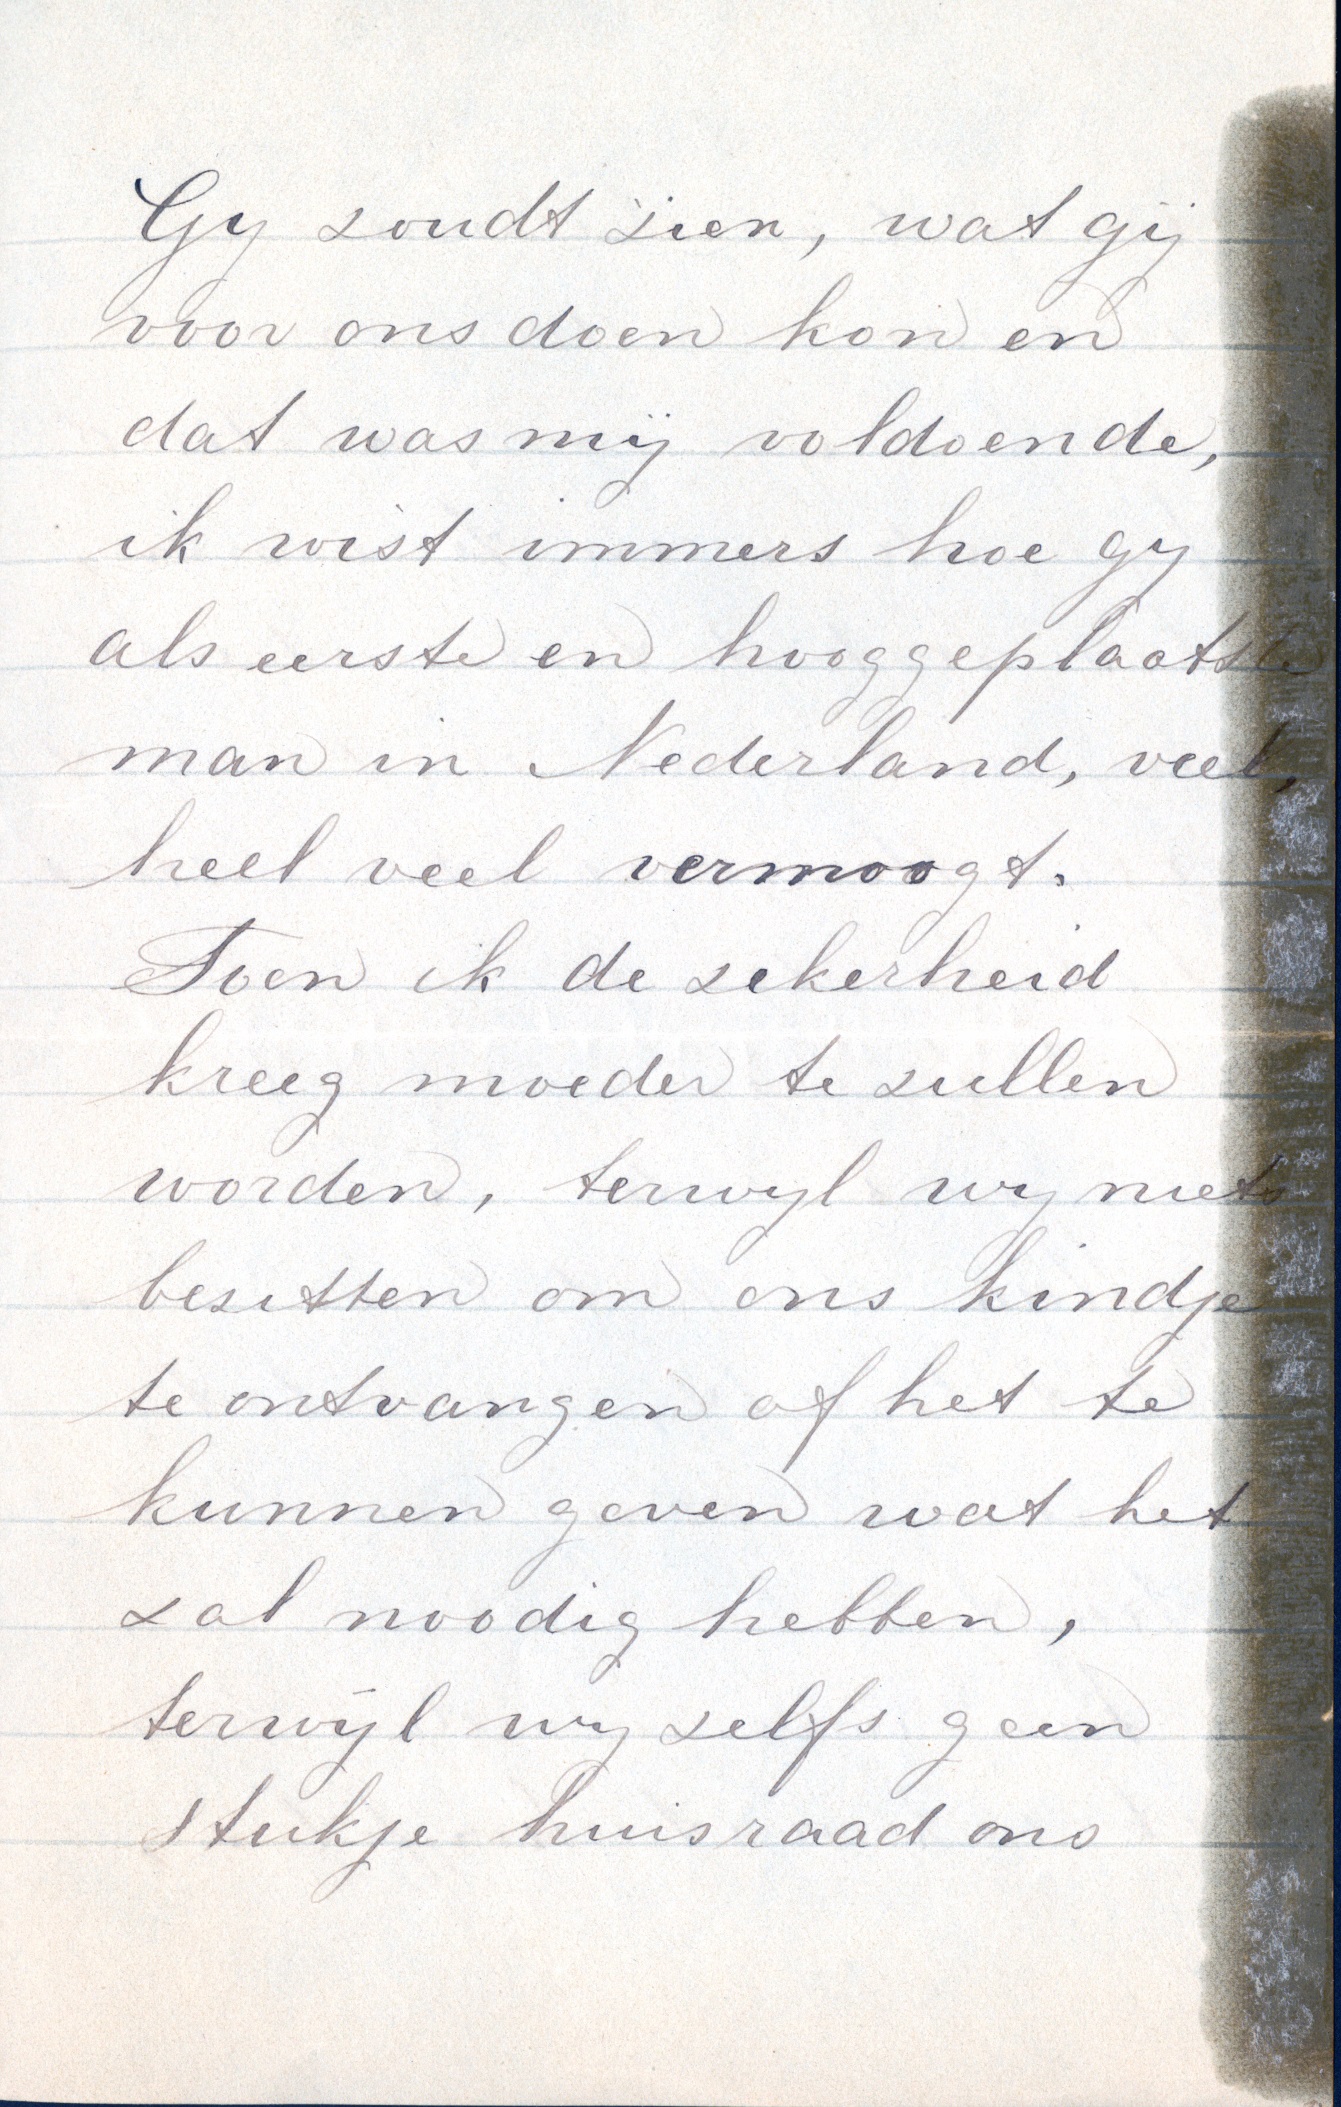 Gy zoudt zien, wat gij
voor ons doen kon en
dat was mij voldoende,
ik wist immers hoe gy
als eerste en hooggeplaatste
man in Nederland, veel,
heel veel vermoogt.
Toen ik de zekerheid
kreeg moeder te zullen
worden, terwyl wy niets
bezitten om ons kindje
te ontvangen of het te
kunnen geven wat het
zal noodig hebben,
terwijl wy zelfs geen
stukje huisraad ons